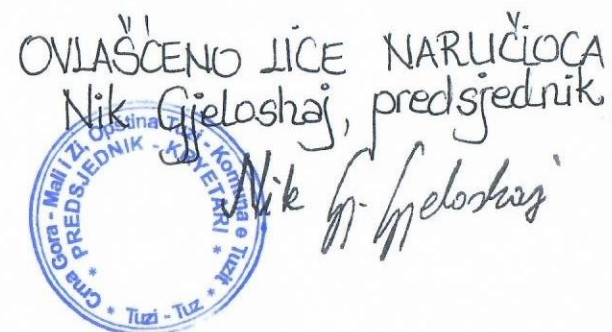 OVLAŠĆENO LICE NARUČIOCA
Nik Gjeloshaj, predsjednik
Nik Gj. Gjeloshaj
Crna Gora - Mali i Zi, Opština Tuzi - Komuna e Tuzit
* PREDSJEDNIK - KRYETARI *
* Tuzi - Tuz *